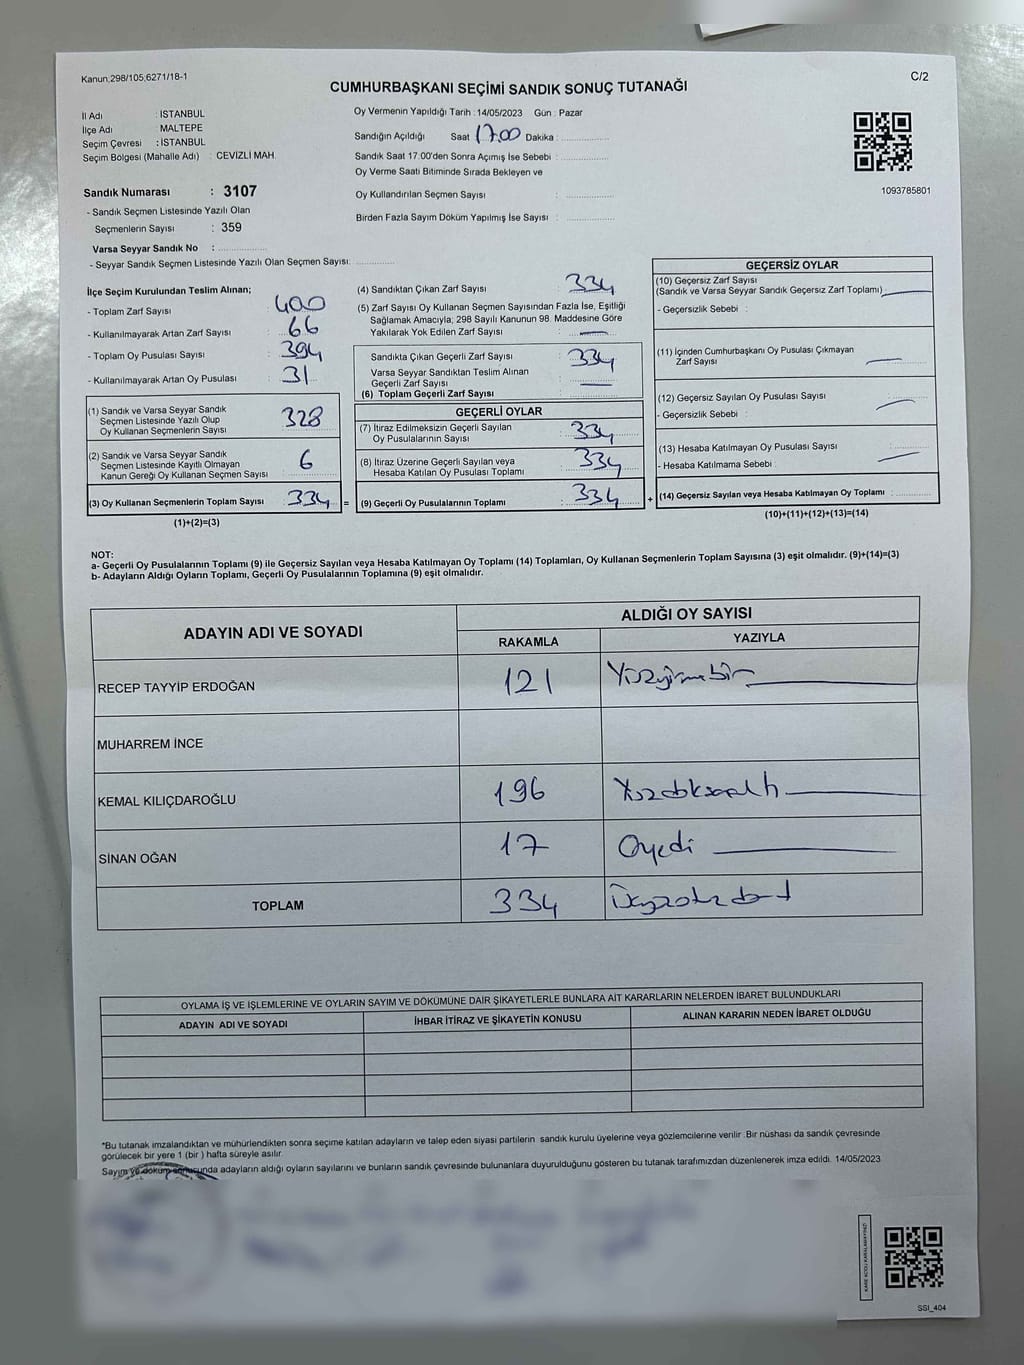 Kanun,298/105,6271/18-1
C/2
CUMHURBAŞKANI SEÇİMİ SANDIK SONUÇ TUTANAĞI
İl Adı : İSTANBUL
İlçe Adı : MALTEPE
Seçim Çevresi : İSTANBUL
Seçim Bölgesi (Mahalle Adı) : CEVİZLİ MAH.
Sandık Numarası : 3107
- Sandık Seçmen Listesinde Yazılı Olan
Seçmenlerin Sayısı : 359
Varsa Seyyar Sandık No :
- Seyyar Sandık Seçmen Listesinde Yazılı Olan Seçmen Sayısı:
Oy Vermenin Yapıldığı Tarih : 14/05/2023 Gün : Pazar
Sandığın Açıldığı Saat 17.00 Dakika :
Sandık Saat 17.00'den Sonra Açımış İse Sebebi :
Oy Verme Saati Bitiminde Sırada Bekleyen ve
Oy Kullandırılan Seçmen Sayısı :
Birden Fazla Sayım Döküm Yapılmış İse Sayısı :
1093785801
İlçe Seçim Kurulundan Teslim Alınan;
- Toplam Zarf Sayısı : 400
- Kullanılmayarak Artan Zarf Sayısı : 66
- Toplam Oy Pusulası Sayısı : 394
- Kullanılmayarak Artan Oy Pusulası : 31
(1) Sandık ve Varsa Seyyar Sandık
Seçmen Listesinde Yazılı Olup
Oy Kullanan Seçmenlerin Sayısı : 328
(2) Sandık ve Varsa Seyyar Sandık
Seçmen Listesinde Kayıtlı Olmayan
Kanun Gereği Oy Kullanan Seçmen Sayısı : 6
(3) Oy Kullanan Seçmenlerin Toplam Sayısı : 334 =
(1)+(2)=(3)
(4) Sandıktan Çıkan Zarf Sayısı : 334
(5) Zarf Sayısı Oy Kullanan Seçmen Sayısından Fazla İse, Eşitliği
Sağlamak Amacıyla; 298 Sayılı Kanunun 98. Maddesine Göre
Yakılarak Yok Edilen Zarf Sayısı : —
Sandıkta Çıkan Geçerli Zarf Sayısı : 334
Varsa Seyyar Sandıktan Teslim Alınan
Geçerli Zarf Sayısı : —
(6) Toplam Geçerli Zarf Sayısı :
GEÇERLİ OYLAR
(7) İtiraz Edilmeksizin Geçerli Sayılan
Oy Pusulalarının Sayısı : 334
(8) İtiraz Üzerine Geçerli Sayılan veya
Hesaba Katılan Oy Pusulası Toplamı : 334
(9) Geçerli Oy Pusulalarının Toplamı : 334 +
GEÇERSİZ OYLAR
(10) Geçersiz Zarf Sayısı
(Sandık ve Varsa Seyyar Sandık Geçersiz Zarf Toplamı) : —
- Geçersizlik Sebebi :
(11) İçinden Cumhurbaşkanı Oy Pusulası Çıkmayan
Zarf Sayısı : —
(12) Geçersiz Sayılan Oy Pusulası Sayısı : —
- Geçersizlik Sebebi :
(13) Hesaba Katılmayan Oy Pusulası Sayısı : —
- Hesaba Katılmama Sebebi :
(14) Geçersiz Sayılan veya Hesaba Katılmayan Oy Toplamı :
(10)+(11)+(12)+(13)=(14)
NOT:
a- Geçerli Oy Pusulalarının Toplamı (9) ile Geçersiz Sayılan veya Hesaba Katılmayan Oy Toplamı (14) Toplamları, Oy Kullanan Seçmenlerin Toplam Sayısına (3) eşit olmalıdır. (9)+(14)=(3)
b- Adayların Aldığı Oyların Toplamı, Geçerli Oy Pusulalarının Toplamına (9) eşit olmalıdır.
ADAYIN ADI VE SOYADI
ALDIĞI OY SAYISI
RAKAMLA YAZIYLA
RECEP TAYYİP ERDOĞAN 121 Yüzyirmibir
MUHARREM İNCE
KEMAL KILIÇDAROĞLU 196 Yüzdoksanaltı
SİNAN OĞAN 17 Onyedi
TOPLAM 334 Üçyüzotuzdört
OYLAMA İŞ VE İŞLEMLERİNE VE OYLARIN SAYIM VE DÖKÜMÜNE DAİR ŞİKAYETLERLE BUNLARA AİT KARARLARIN NELERDEN İBARET BULUNDUKLARI
ADAYIN ADI VE SOYADI İHBAR İTİRAZ VE ŞİKAYETİN KONUSU ALINAN KARARIN NEDEN İBARET OLDUĞU
*Bu tutanak imzalandıktan ve mühürlendikten sonra seçime katılan adayların ve talep eden siyasi partilerin sandık kurulu üyelerine veya gözlemcilerine verilir. Bir nüshası da sandık çevresinde
görülecek bir yere 1 (bir ) hafta süreyle asılır.
Sayım ve döküm sonucunda adayların aldığı oyların sayılarını ve bunların sandık çevresinde bulunanlara duyurulduğunu gösteren bu tutanak tarafımızdan düzenlenerek imza edildi. 14/05/2023
SSI_404